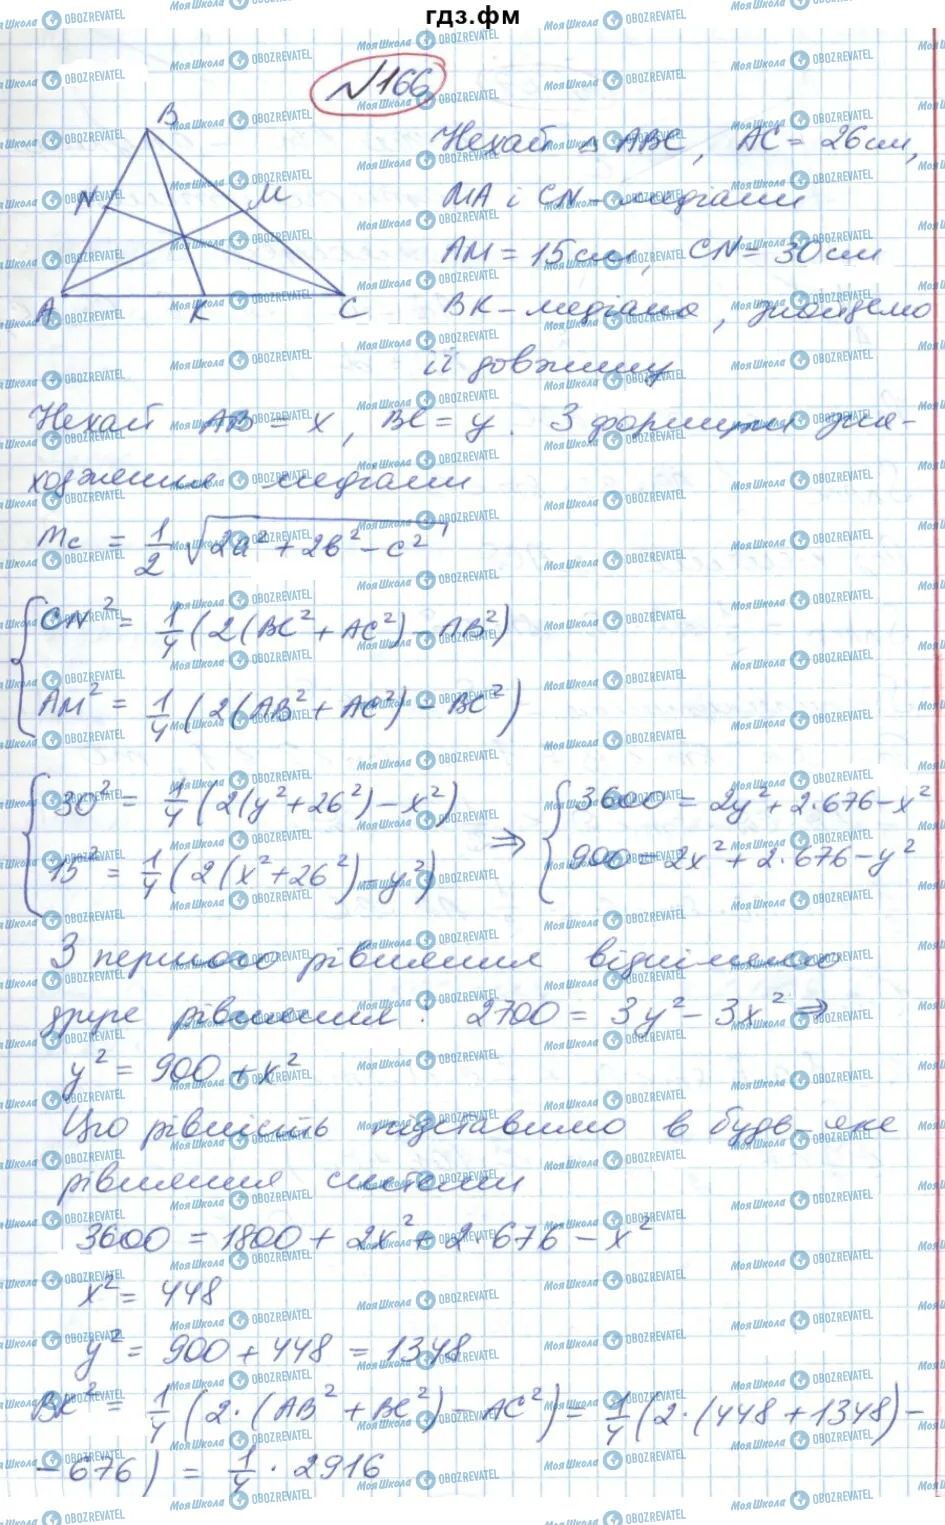 гдз.фм
№166
B
N M
A K C
Нехай △ ABC, AC = 26 см,
MA і CN - медіани
AM = 15 см, CN = 30 см
BK - медіана, знайдемо
її довжину
Нехай AB = x, BC = y. З формули зна-
ходження медіани
mc = 1/2 √(2a² + 2b² - c²)
CN² = 1/4 (2(BC² + AC²) - AB²)
AM² = 1/4 (2(AB² + AC²) - BC²)
30² = 1/4 (2(y² + 26²) - x²) ⇒ 3600 = 2y² + 2·676 - x²
15² = 1/4 (2(x² + 26²) - y²) 900 = 2x² + 2·676 - y²
З першого рівняння віднімемо
друге рівняння: 2700 = 3y² - 3x² ⇒
y² = 900 + x²
Цю рівність підставимо в будь-яке
рівняння системи
3600 = 1800 + 2x² + 2·676 - x²
x² = 448
y² = 900 + 448 = 1348
BK² = 1/4 (2·(AB² + BC²) - AC²) = 1/4 (2·(448 + 1348) -
- 676) = 1/4 · 2916
МояШкола OBOZREVATEL